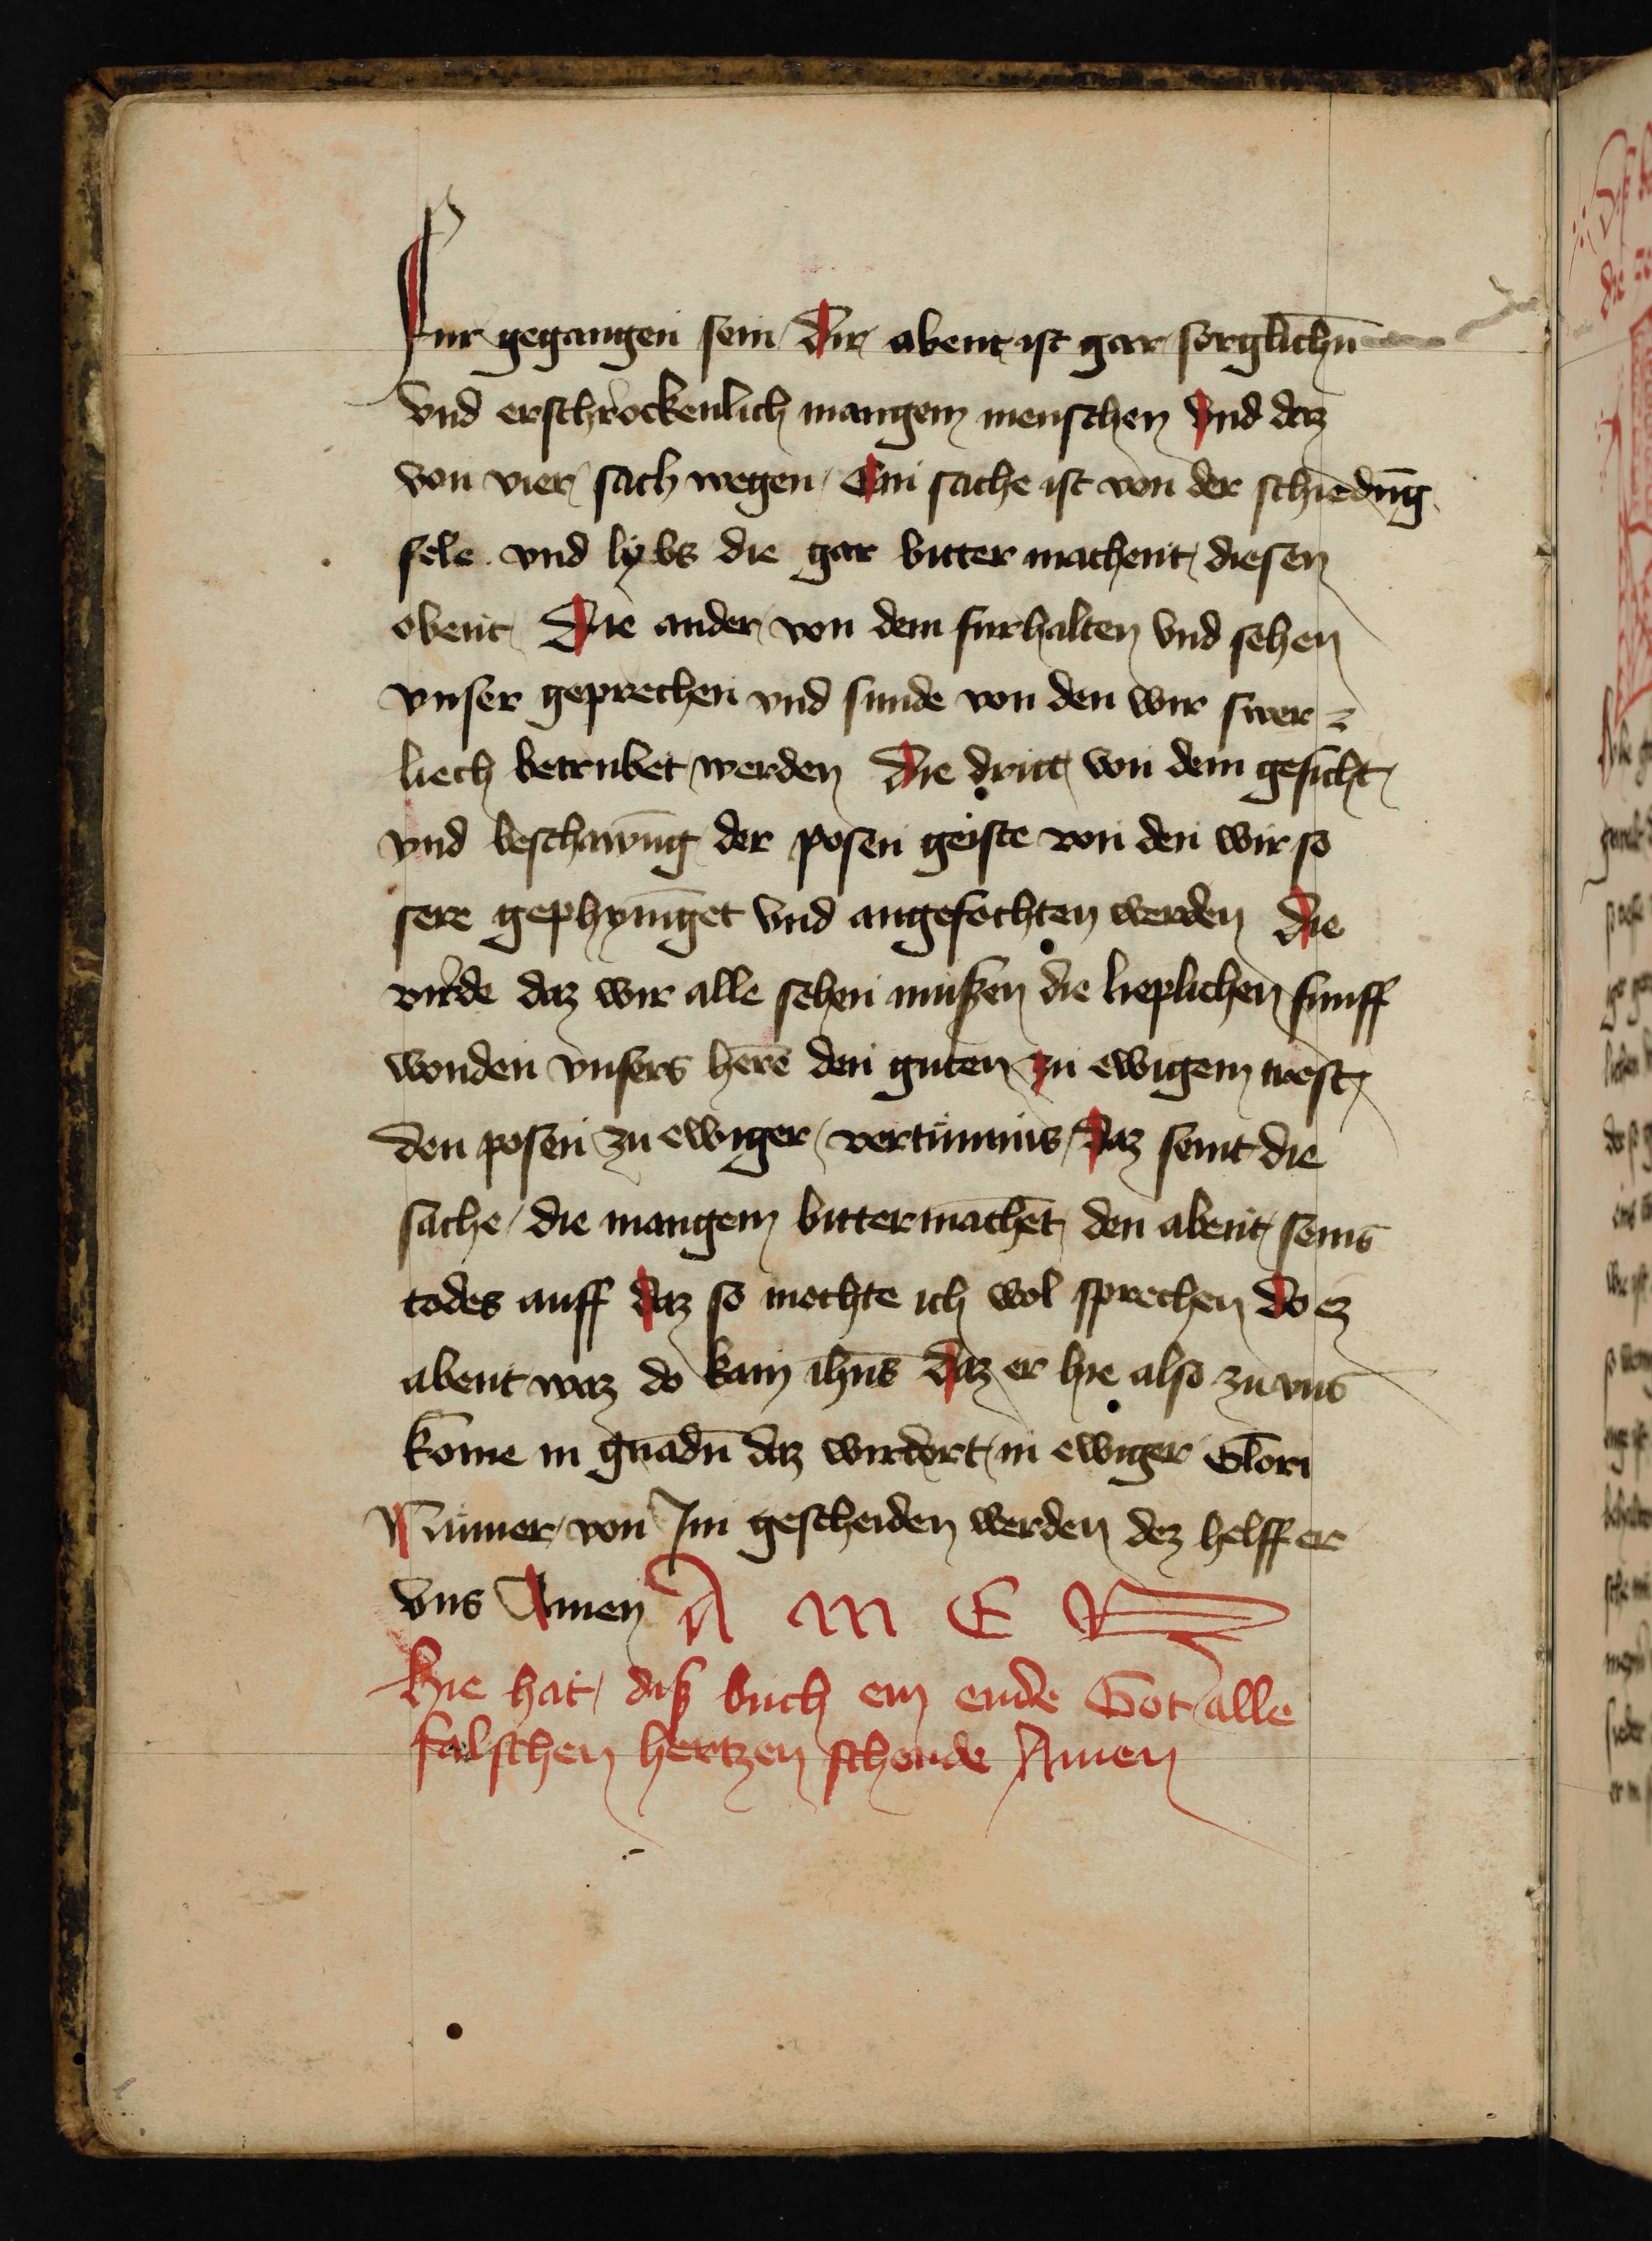 Fur gegangen sein Dir abent ist gar sorglichn̄
vnd erschrockenlich mangem menschen vnd daz
von vier sach wegen Ein sache ist von der schiedūg
sele vnd lybs die gar bitter machent diesen
obent Die ander von dem furhalten vnd sehen
vnser geprechen vnd sunde von den wir swer
liech betrubet werden Die dritt von dem gesicht
vnd beschawūg der posen geiste von den wir so
sere gephyniget vnd angefochten werden Die
virde daz wir alle sehen mußen die lieplichen funff
wonden vnsers herē den guten zu ewigem trost
den posen zu ewiger vertumnis Daz seint die
sache die mangem bitter machēt den abent seins
todes auff daz so mochte ich wol sprechen Do ez
abent waz do kam ihūs Daz er hie also zu vns
kome in gnadn̄ daz wir dort in ewiger Glori
Nummer von Im gescheiden werden dez helff er
vns Amen A M E N
Hie hat diß buch ein ende Got alle
falschen hertzen schende Amen